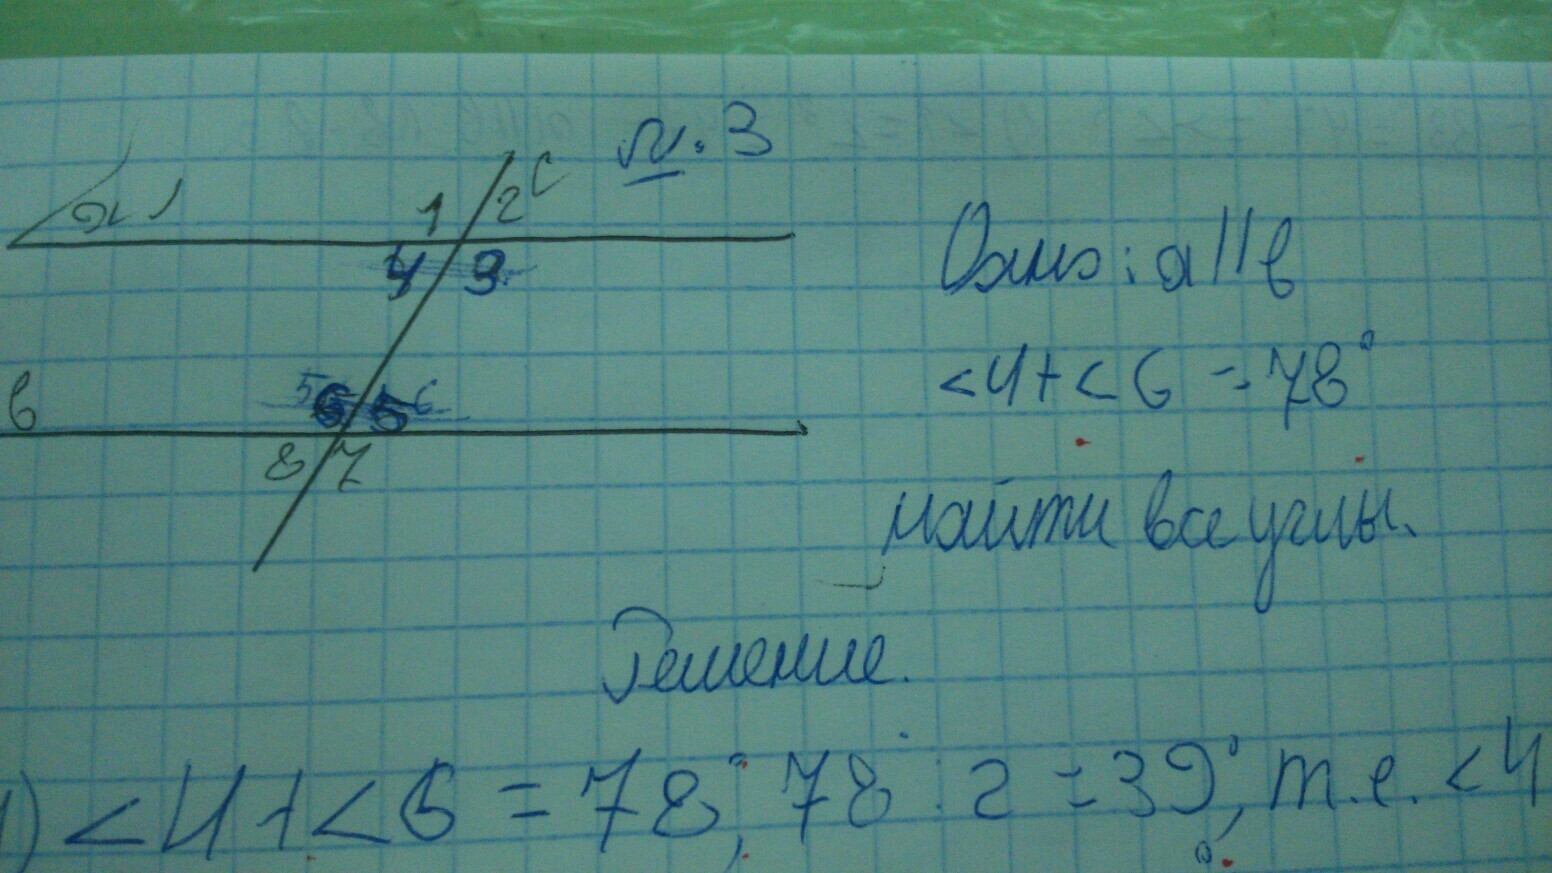 №. 3
a
1 2 c
4 3
Дано: a || в
<4+<6 = 78°
в
5 6
8 7
найти все углы.
Решение.
1) <4+<6 = 78°, 78° : 2 = 39°, т.е. <4